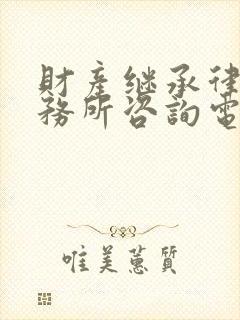 財產继承律
務所咨詢電
唯美蕙質